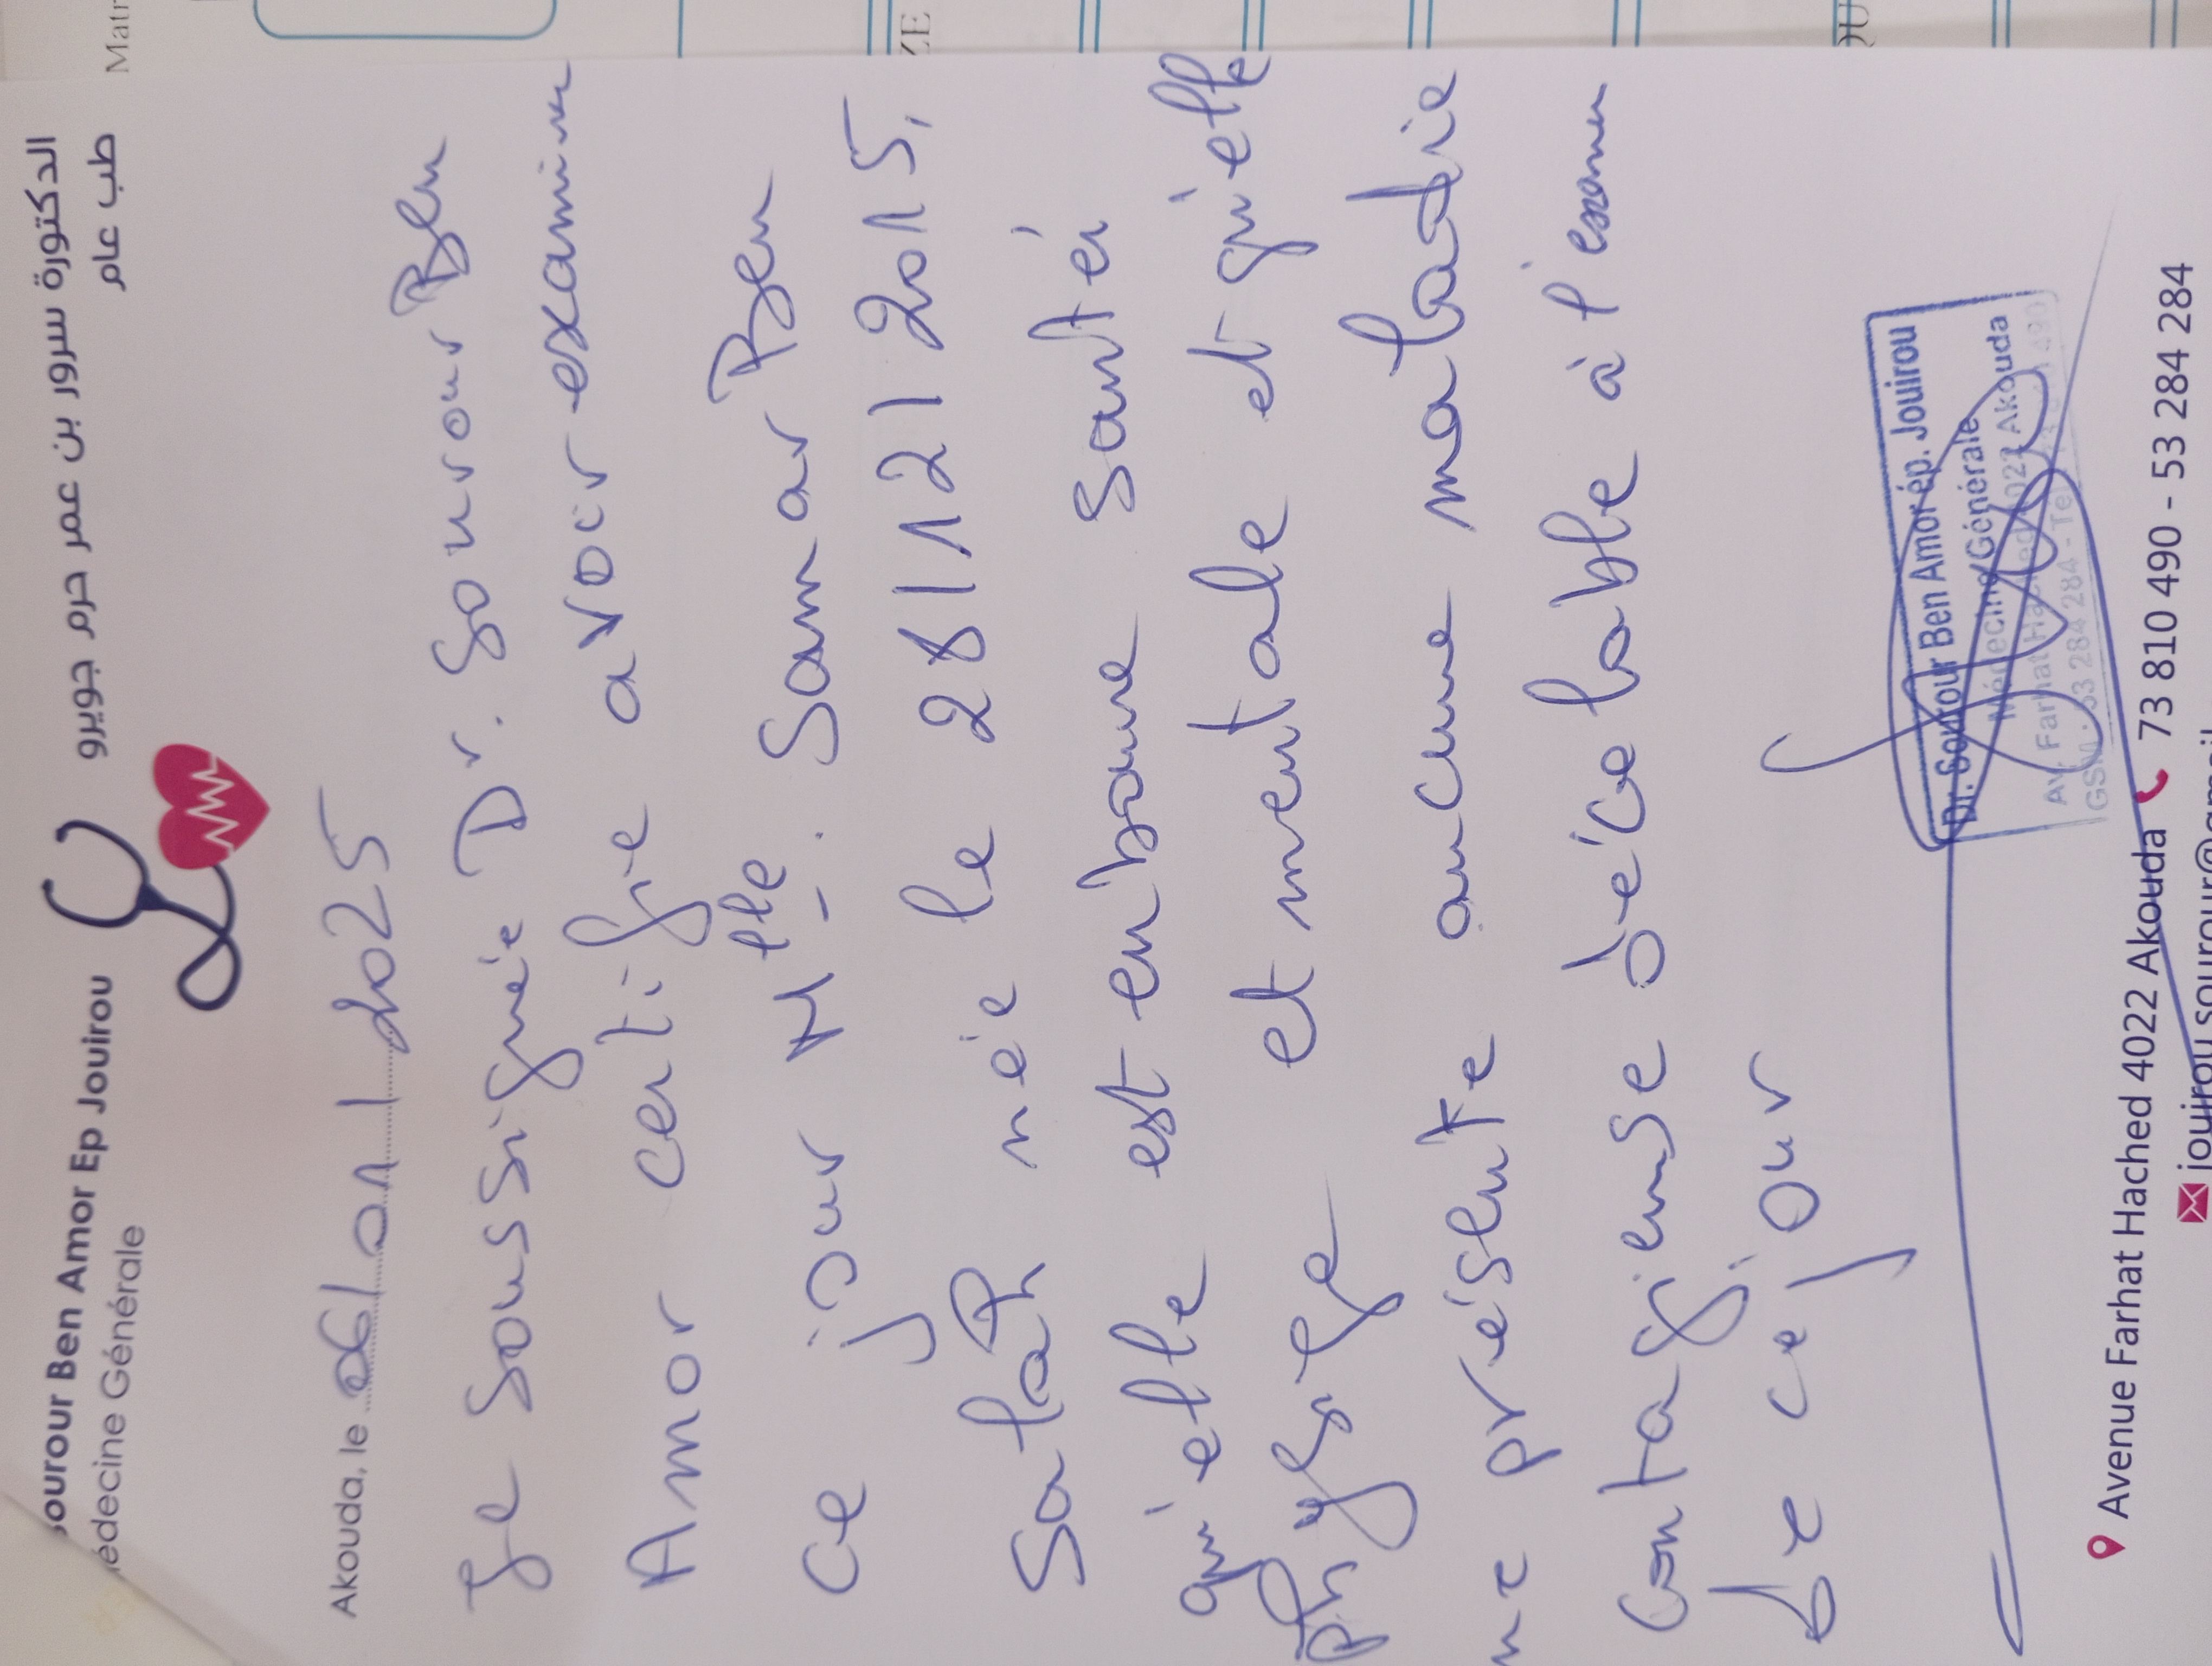 Sourour Ben Amor Ep Jouirou
Médecine Générale
الدكتورة سرور بن عمر حرم جويرو
طب عام
Akouda, le 06/01/2025
Je soussignée Dr. Sourour Ben
Amor certifie avoir examiner
ce jour Mlle. Samar Ben
Salah née le 28/12/2015,
qu'elle est en bonne santé
physique et mentale et qu'elle
ne présente aucune maladie
contagieuse décelable à l'examen
de ce jour
Dr. Sourour Ben Amor ép. Jouirou
Médecine Générale
Av. Farhat Hached 4022 Akouda
GSM: 53 284 284 - Tél
Avenue Farhat Hached 4022 Akouda 73 810 490 - 53 284 284
jouirou.sourour@gmail
Matr
ZE
QU